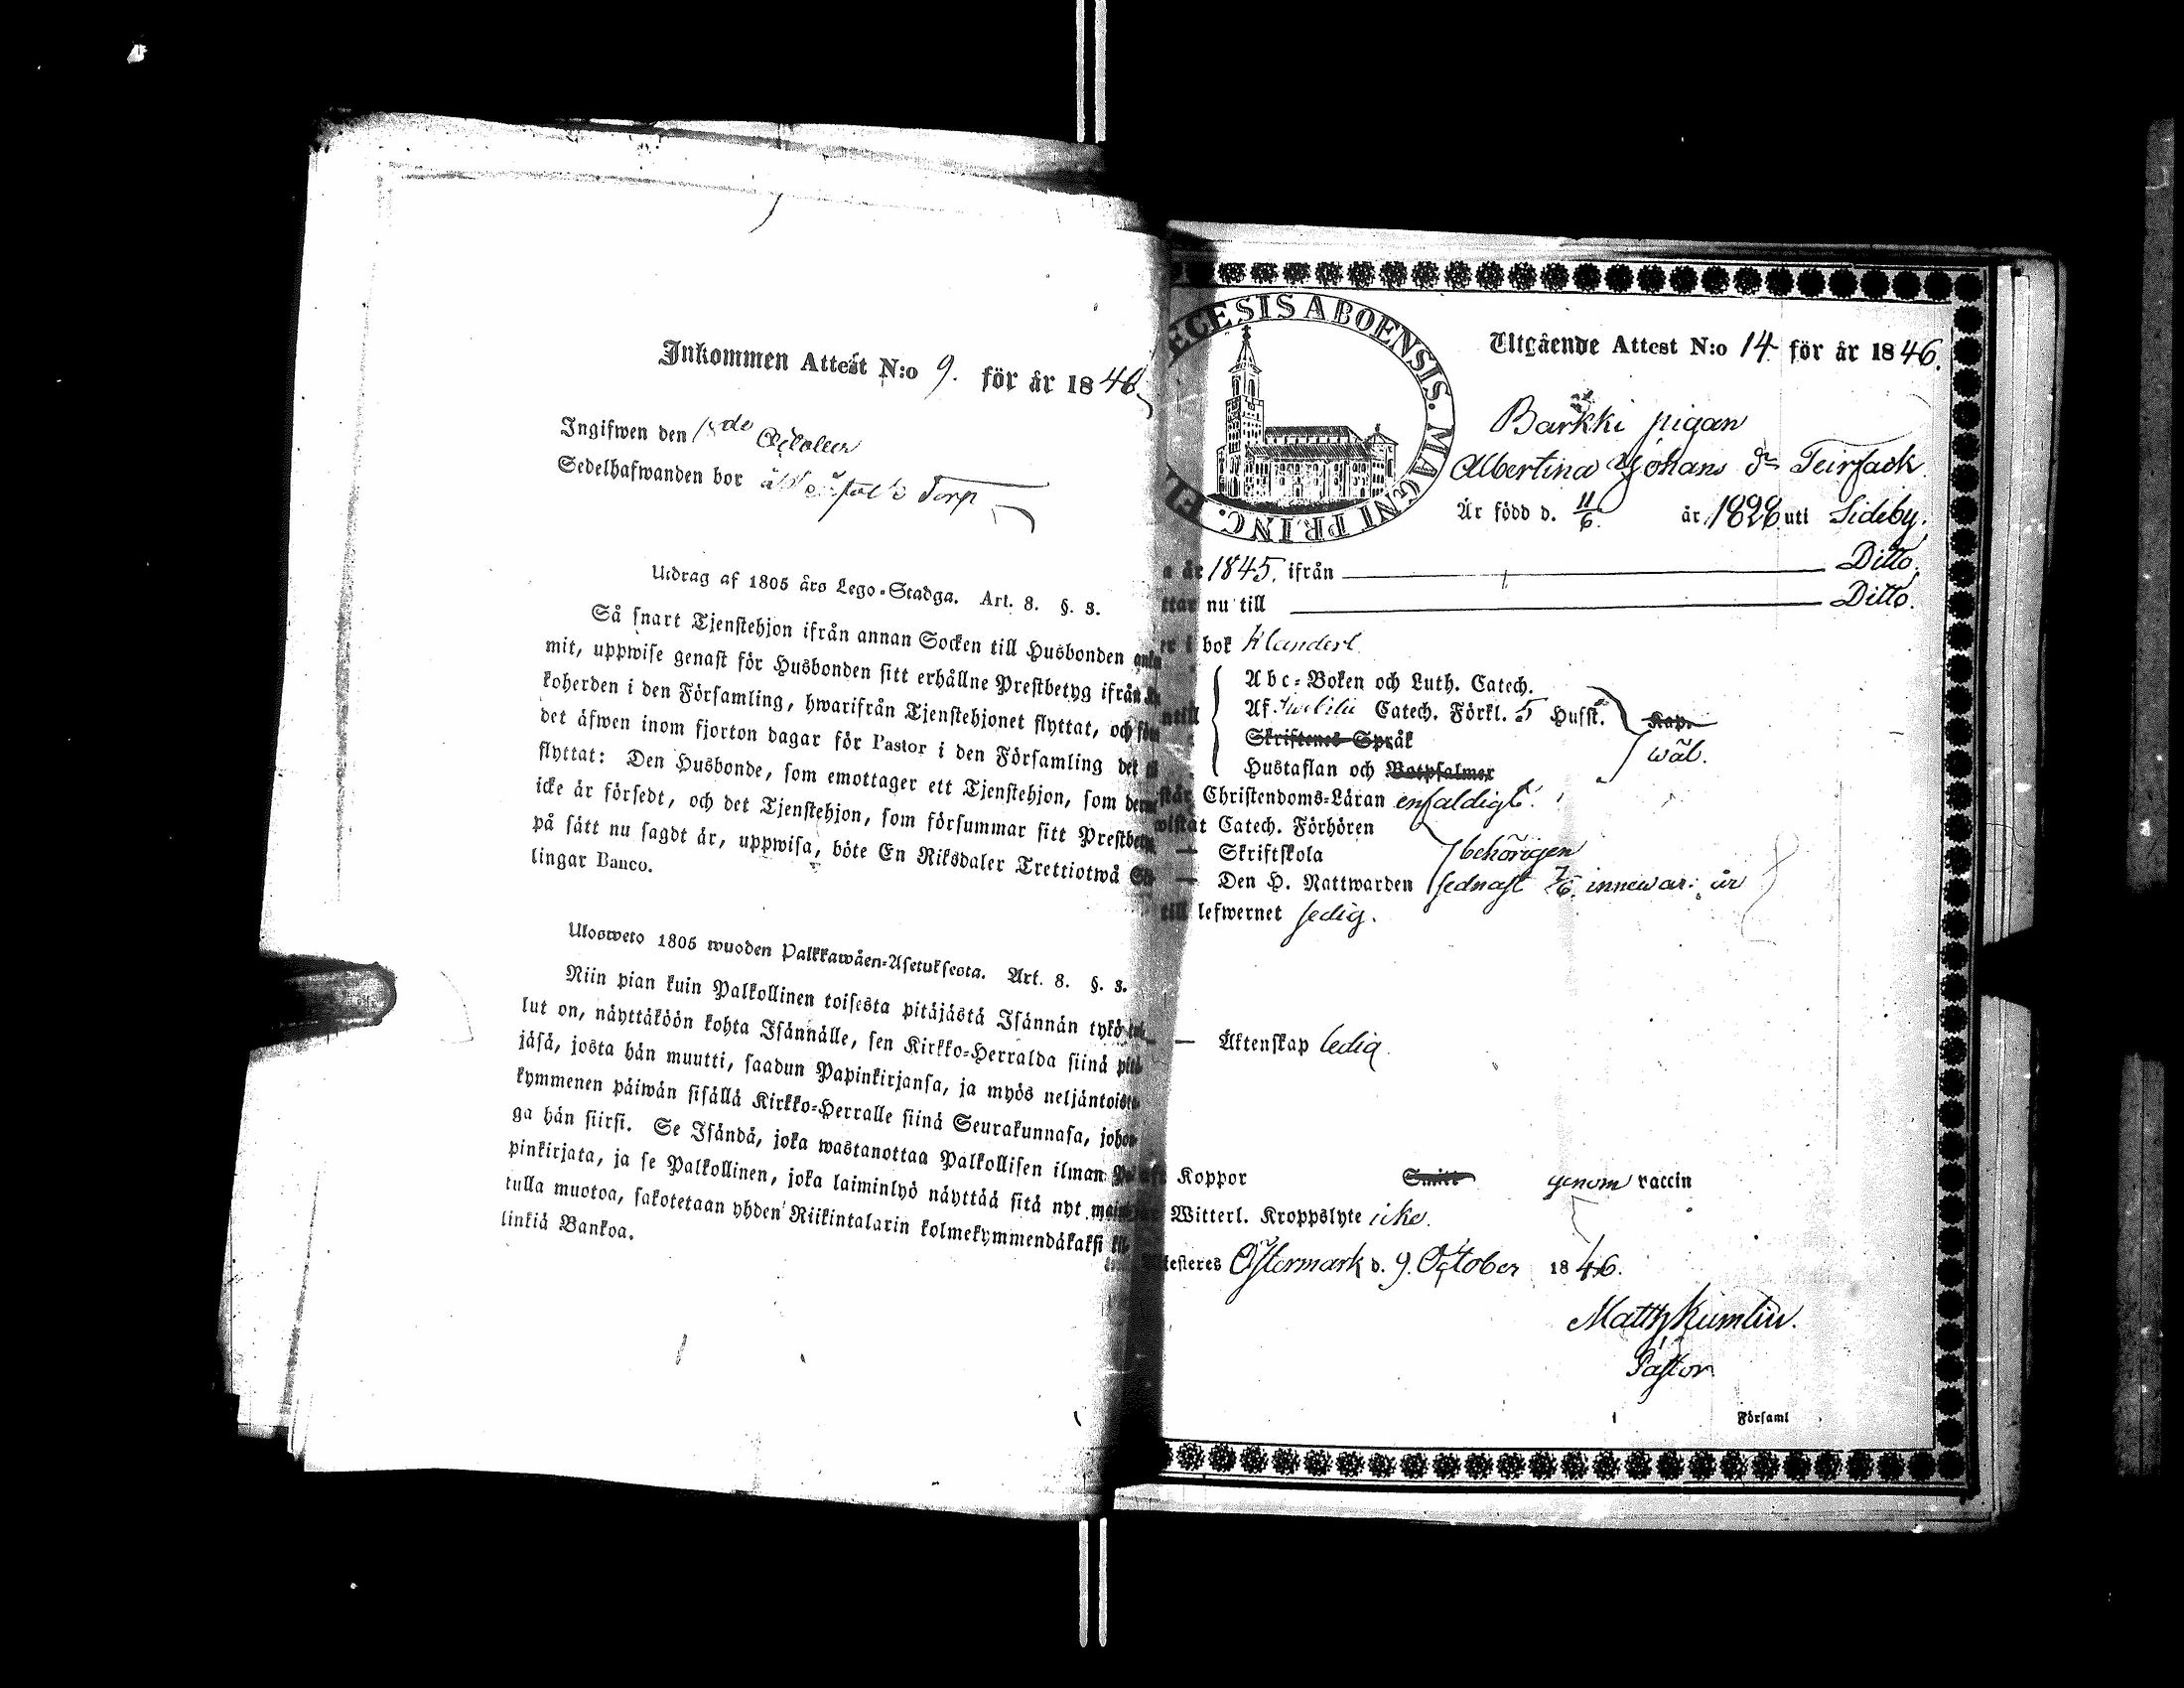 Inkommen Attest N:o 9. för år 1846
Ingifwen den October
Sedelhafwanden bor Torp
Utdrag af 1805 års Lego-Stadga. Art. 8. §. 3.
Så snart Tjenstehjon ifrån annan Socken till Husbonden
mit, uppwise genast för Husbonden sitt erhållne Prestbetyg ifrån
koherden i den Församling, hwarifrån Tjenstehjonet flyttat, och
det äfwen inom fjorton dagar för Pastor i den Församling det
flyttat: Den Husbonde, som emottager ett Tjenstehjon, som
icke är försedt, och det Tjenstehjon, som försummar sitt
på sätt nu sagdt är, uppwisa, böte En Riksdaler Trettiotwå
lingar Banco.
Ulosweto 1805 wuoden Palkkawäen-Asetuksesta. Art. 8. §. 3.
Niin pian kuin Palkollinen toisesta pitäjästä Isännän tykö
lut on, näyttäköön kohta Isännälle, sen Kirkko-Herralda siinä
jäsä, josta hän muutti, saadun Papinkirjansa, ja myös
kymmenen päiwän sisällä Kirkko-Herralle siinä Seurakunnasa,
ga hän siirsi. Se Isändä, joka wastanottaa Palkollisen ilman
pinkirjata, ja se Palkollinen, joka laiminlyö näyttää sitä nyt
tulla muotoa, sakotetaan yhden Riikintalarin kolmekymmendäkaksi
linkiä Bankoa.
ECESIS ABOENSIS. MAGNI PRINC.
Utgående Attest N:o 14 för år 1846.
Barkki pigan
Albertina Johans dr Teirfack
Är född d. 11/6. år 1828 uti Sideby.
år 1845. ifrån Ditto.
nu till Ditto.
i bok klanderl
Abc-Boken och Luth. Catech.
Af Swebilii Catech. Förkl. 5 Hufst. Kap.
Skriftenes Språk wäl.
Hustaflan och Botpsalmer
Christendoms-Läran enfaldigt.
Catech. Förhören
— Skriftskola behörigen
— Den H. Nattwarden sednast 7/6. innewar: år
till lefwernet sedig.
— Äktenskap ledig.
Koppor Smitt genom vaccin
Witterl. Kroppslyte icke.
Östermark d. 9. October 1846.
Matth Kumlin.
Pastor
i Församl